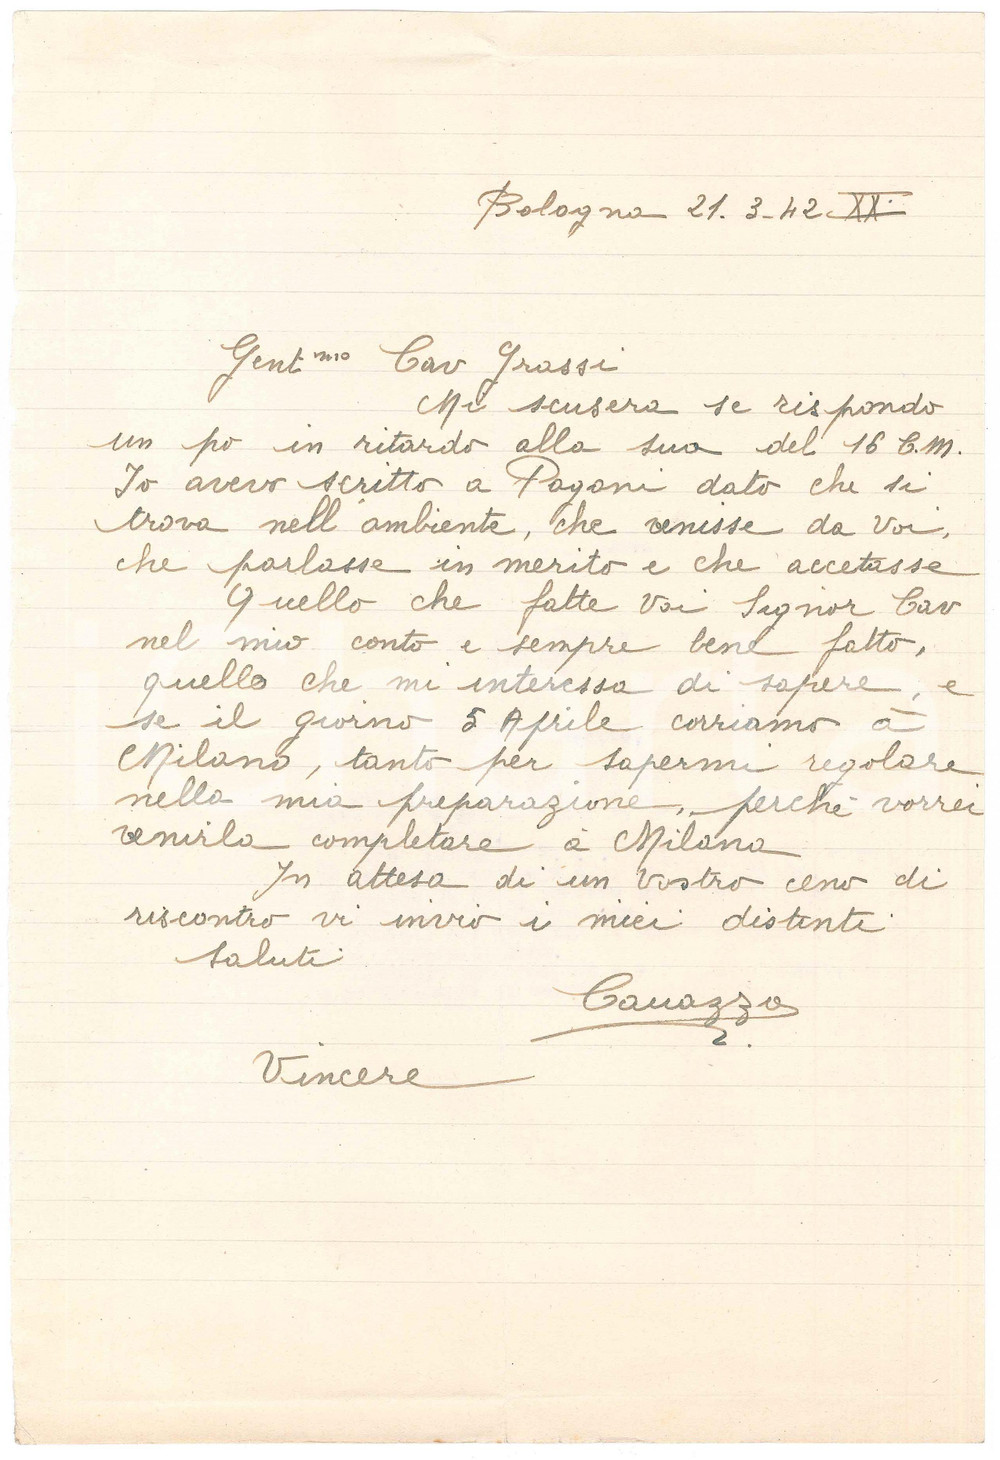 Bologna 21. 3-42 XX.
Gent.mo Cav Grassi
Mi scusera se rispondo
un po in ritardo alla sua del 16 C.M.
Io avevo scritto a Pagani dato che si
trova nell'ambiente, che venisse da voi,
che parlasse in merito e che accetasse
Quello che fatte voi Signor Cav
nel mio conto e sempre bene fatto,
quello che mi interessa di sapere, e
se il giorno 5 Aprile corriamo à
Milano, tanto per sapermi regolare
nella mia preparazione, perchè vorrei
venirla completare à Milano
In attesa di un vostro ceno di
riscontro vi invio i miei distinti
saluti
Cavazza
Vincere